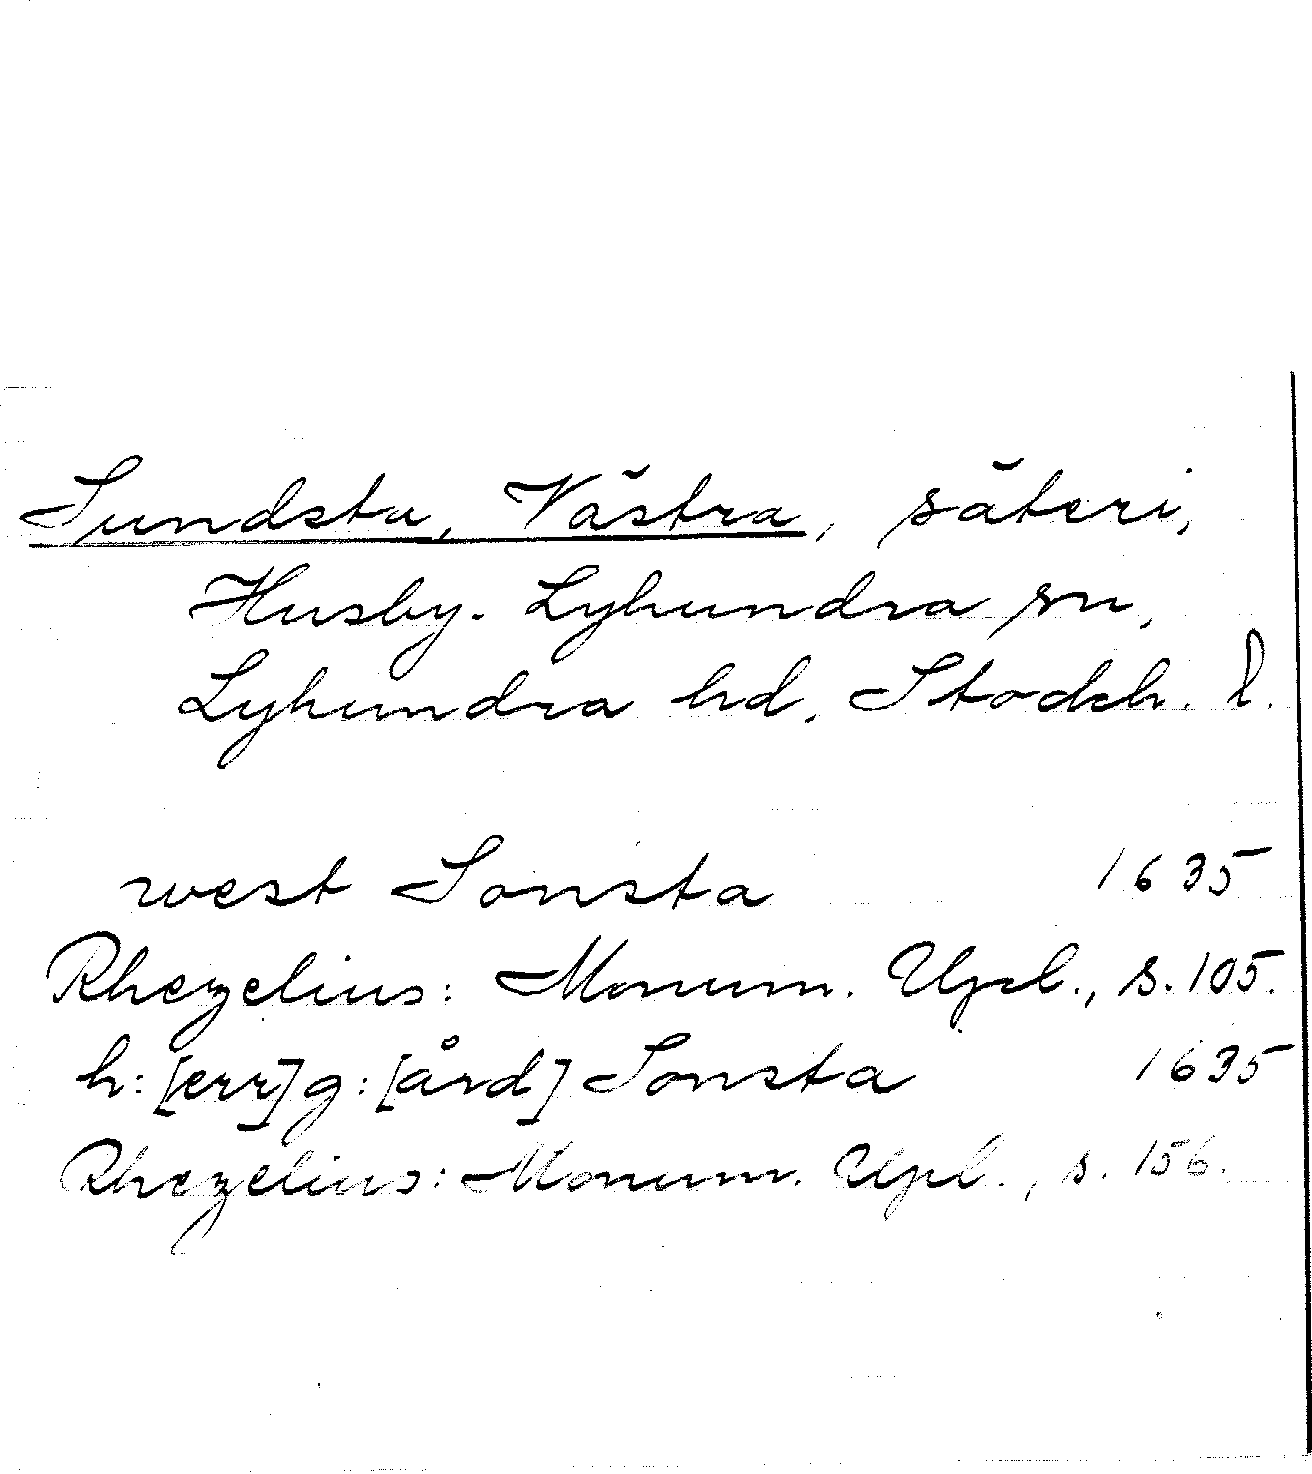 Sundsta, Västra, säteri,
Husby-Lyhundra sn,
Lyhundra hd, Stockh. l.
west Sonsta 1635
Rhezelius: Monum. Upl., s. 105.
h:[err]g:[ård] Sonsta 1635
Rhezelius: Monum. Upl., s. 156.